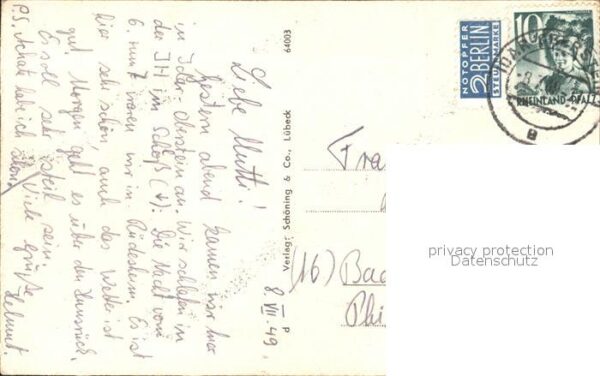 Liebe Mutti!
Gestern abend kamen wir hier
in Idar-Oberstein an. Wir schlafen in
der JH im Schloß (↓). Die Nacht vom
6. zum 7. waren wir in Rüdesheim. Es ist
hier sehr schön, auch das Wetter ist
gut. Morgen geht es über den Hunsrück.
Er soll sehr steil sein.
Viele Grüße
Helmut.
PS. habe ich schon
Verlag: Schöning & Co., Lübeck
64003
NOTOPFER
2 BERLIN
STEUERMARKE
10
RHEINLAND-PFALZ
Fra
(16) Bad
Phi
8 VII 49
privacy protection
Datenschutz